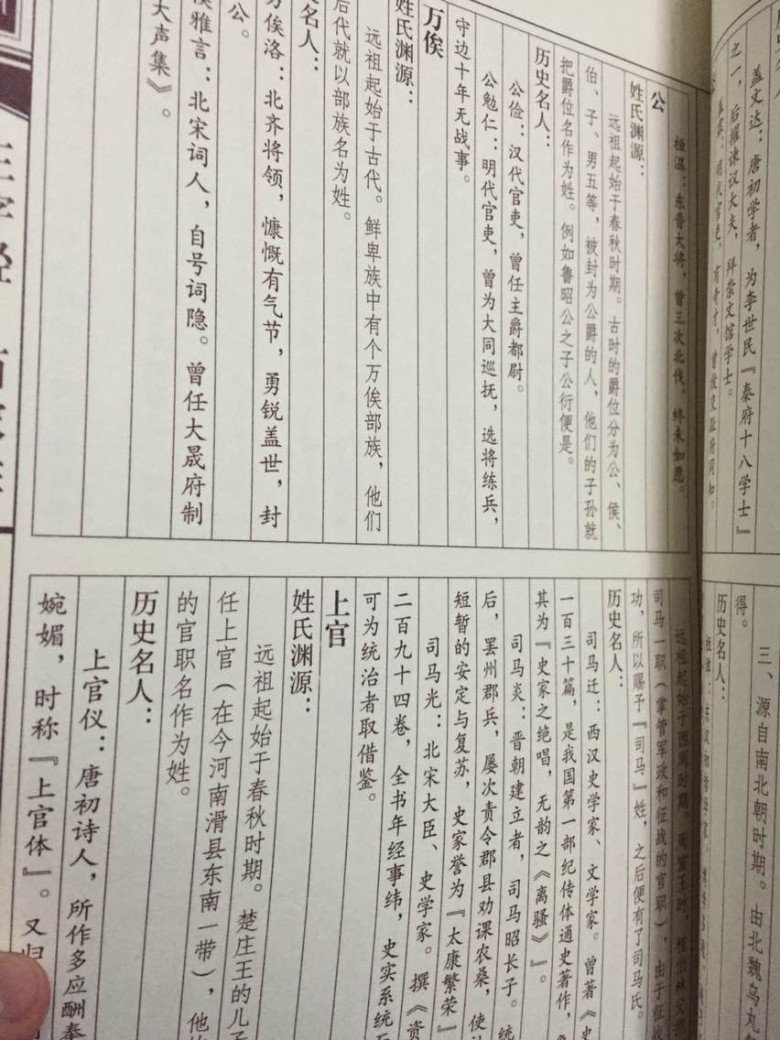 盖文达：唐初学者，为李世民『秦府十八学士』
之一，后擢谏议大夫，拜崇文馆学士。
三、源自南北朝时期。由北魏乌丸
得。
历史名人：
桓温：东晋大将，曾三次北伐，终未如愿。
公
姓氏渊源：
远祖起始于春秋时期。古时的爵位分为公、侯、
伯、子、男五等，被封为公爵的人，他们的子孙就
把爵位名作为姓。例如鲁昭公之子公衍便是。
历史名人：
公俭：汉代官吏，曾任主爵都尉。
公勉仁：明代官吏，曾为大同巡抚，选将练兵，
守边十年无战事。
万俟
姓氏渊源：
远祖起始于古代。鲜卑族中有个万俟部族，他们
后代就以部族名为姓。
名人：
俟洛：北齐将领，慷慨有气节，勇锐盖世，封
公。
雅言：北宋词人，自号词隐。曾任大晟府制
大声集》。
远祖起始于西周时期
司马一职（掌管军政和征战的官职），由于征战
功，所以赐予『司马』姓，之后便有了司马氏。
历史名人：
司马迁：西汉史学家、文学家。曾著《史
一百三十篇，是我国第一部纪传体通史著作，
其为『史家之绝唱，无韵之《离骚》』。
司马炎：晋朝建立者，司马昭长子。统
后，罢州郡兵，屡次责令郡县劝课农桑，使
短暂的安定与复苏，史家誉为『太康繁荣』
司马光：北宋大臣、史学家。撰《资
二百九十四卷，全书年经事纬，史实系统
可为统治者取借鉴。
上官
姓氏渊源：
远祖起始于春秋时期。楚庄王的儿子
任上官（在今河南滑县东南一带），他
的官职名作为姓。
历史名人：
上官仪：唐初诗人，所作多应酬奉
婉媚，时称『上官体』。又归